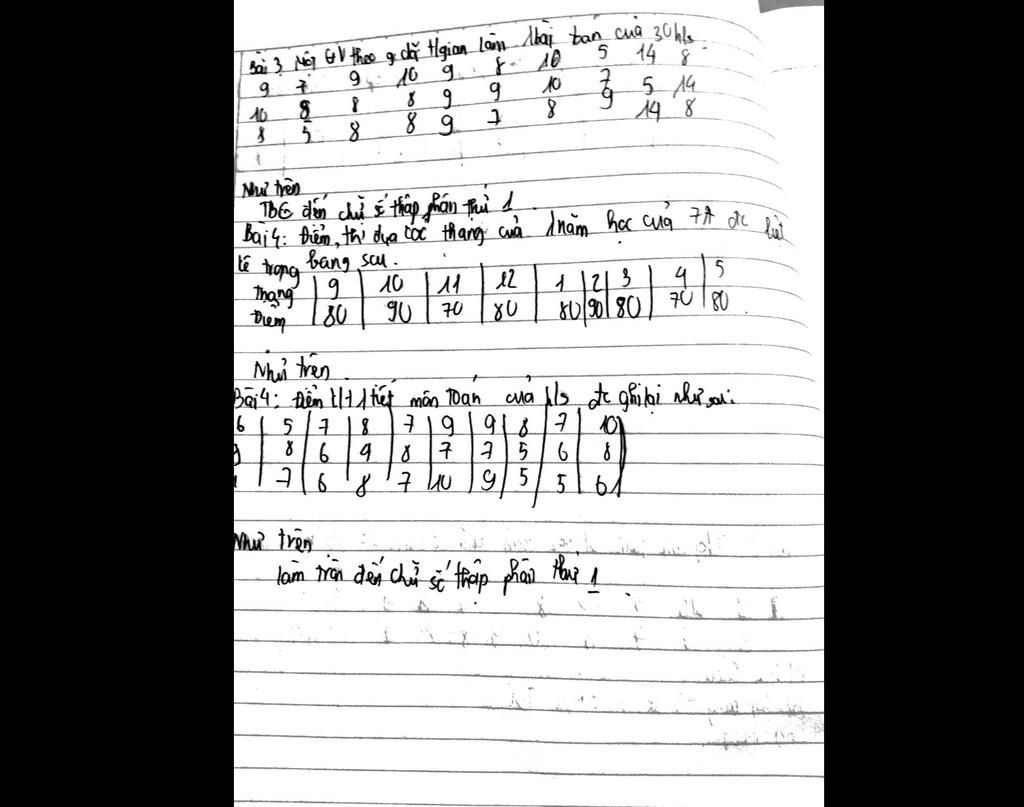 Bài 3 Một GV theo dõi t/gian làm 1 bài toán của 30 h/s
9 7 9 10 9 8 10 5 14 8
10 8 8 8 9 9 10 7 5 14
8 5 8 8 9 7 8 9 14 8
Như trên
TBC đến chữ số thập phân thứ 1
Bài 4: Điểm thi đua các tháng của 1 năm học của 7A đc liệt
kê trong bảng sau.
Tháng 9 10 11 12 1 2 3 4 5
Điểm 80 90 70 80 80 90 80 70 80
Như trên
Bài 4: Điểm k/t 1 tiết môn Toán của h/s đc ghi lại như sau:
6 5 7 8 7 9 9 8 7 10
8 6 9 8 7 7 5 6 8
7 6 8 7 10 9 5 5 6
Như trên
làm tròn đến chữ số thập phân thứ 1